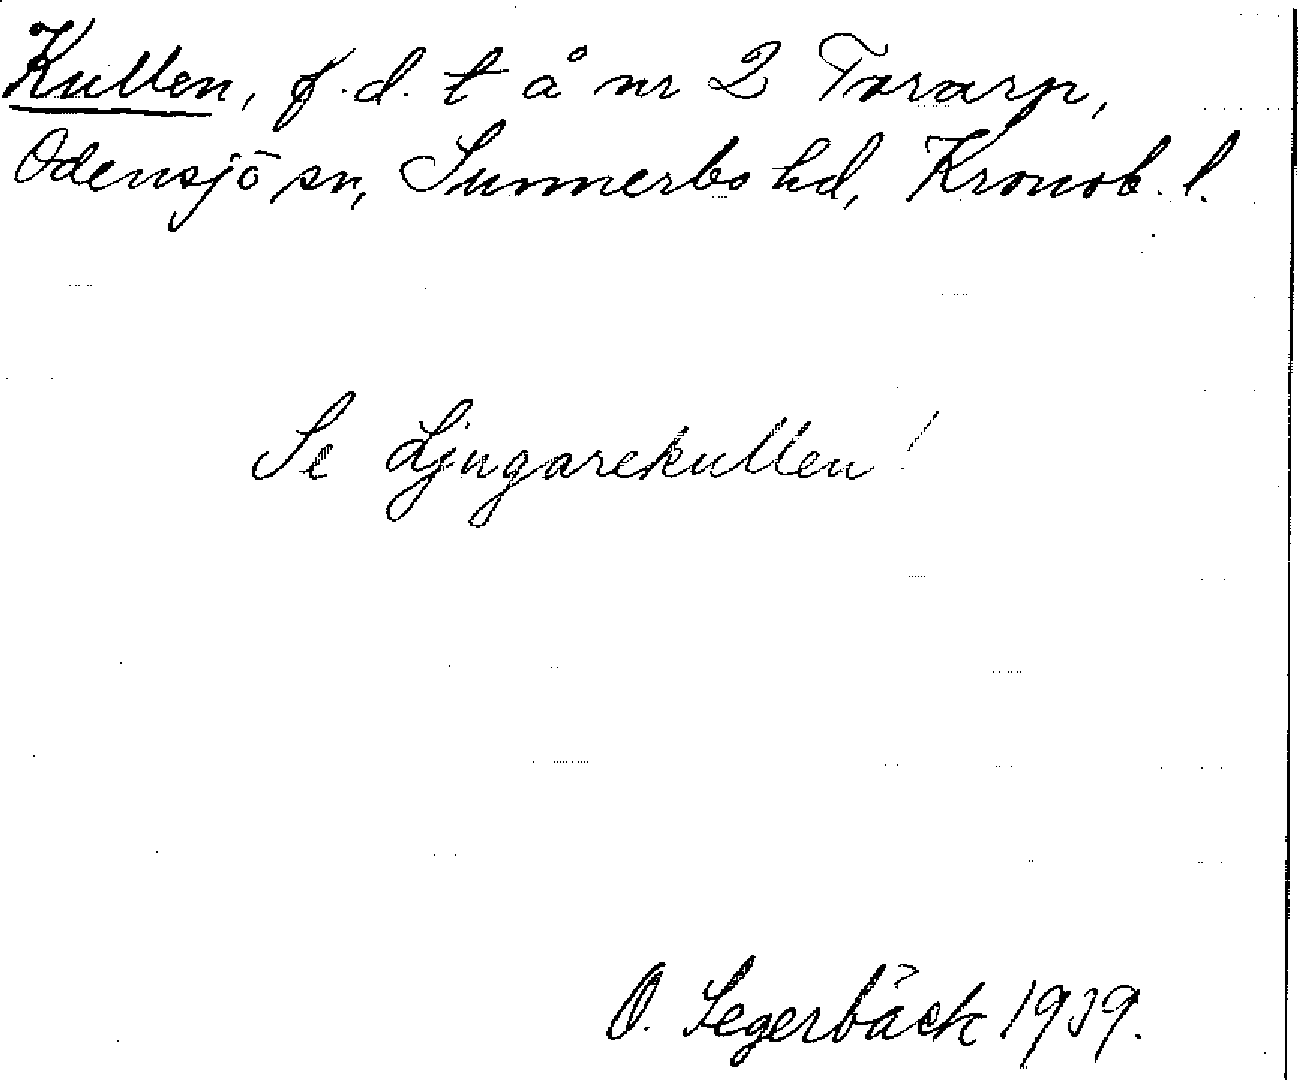 Kullen, f.d. t å nr 2 Torarp,
Odensjö sn, Sunnerbo hd, Kronob. l.
Se Ljungarekullen!
O. Segerbäck 1939.